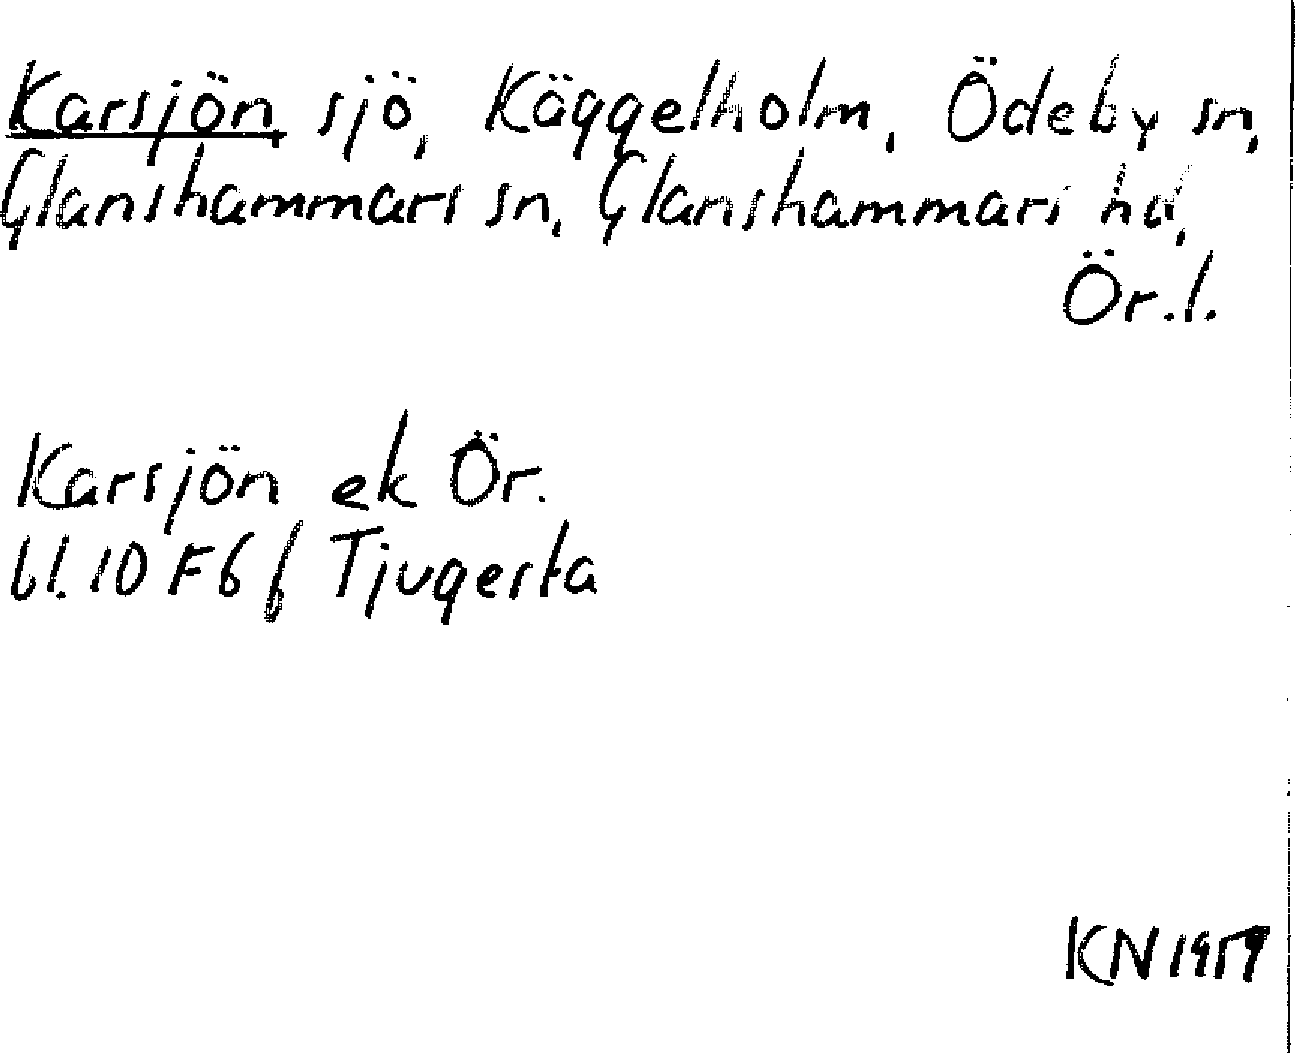 Karsjön, sjö, Käggelholm, Ödeby sn,
Glanshammars sn, Glanshammars hd,
Ör.l.
Karsjön ek Ör.
bl. 10 F6f Tjugesta
KN 1959